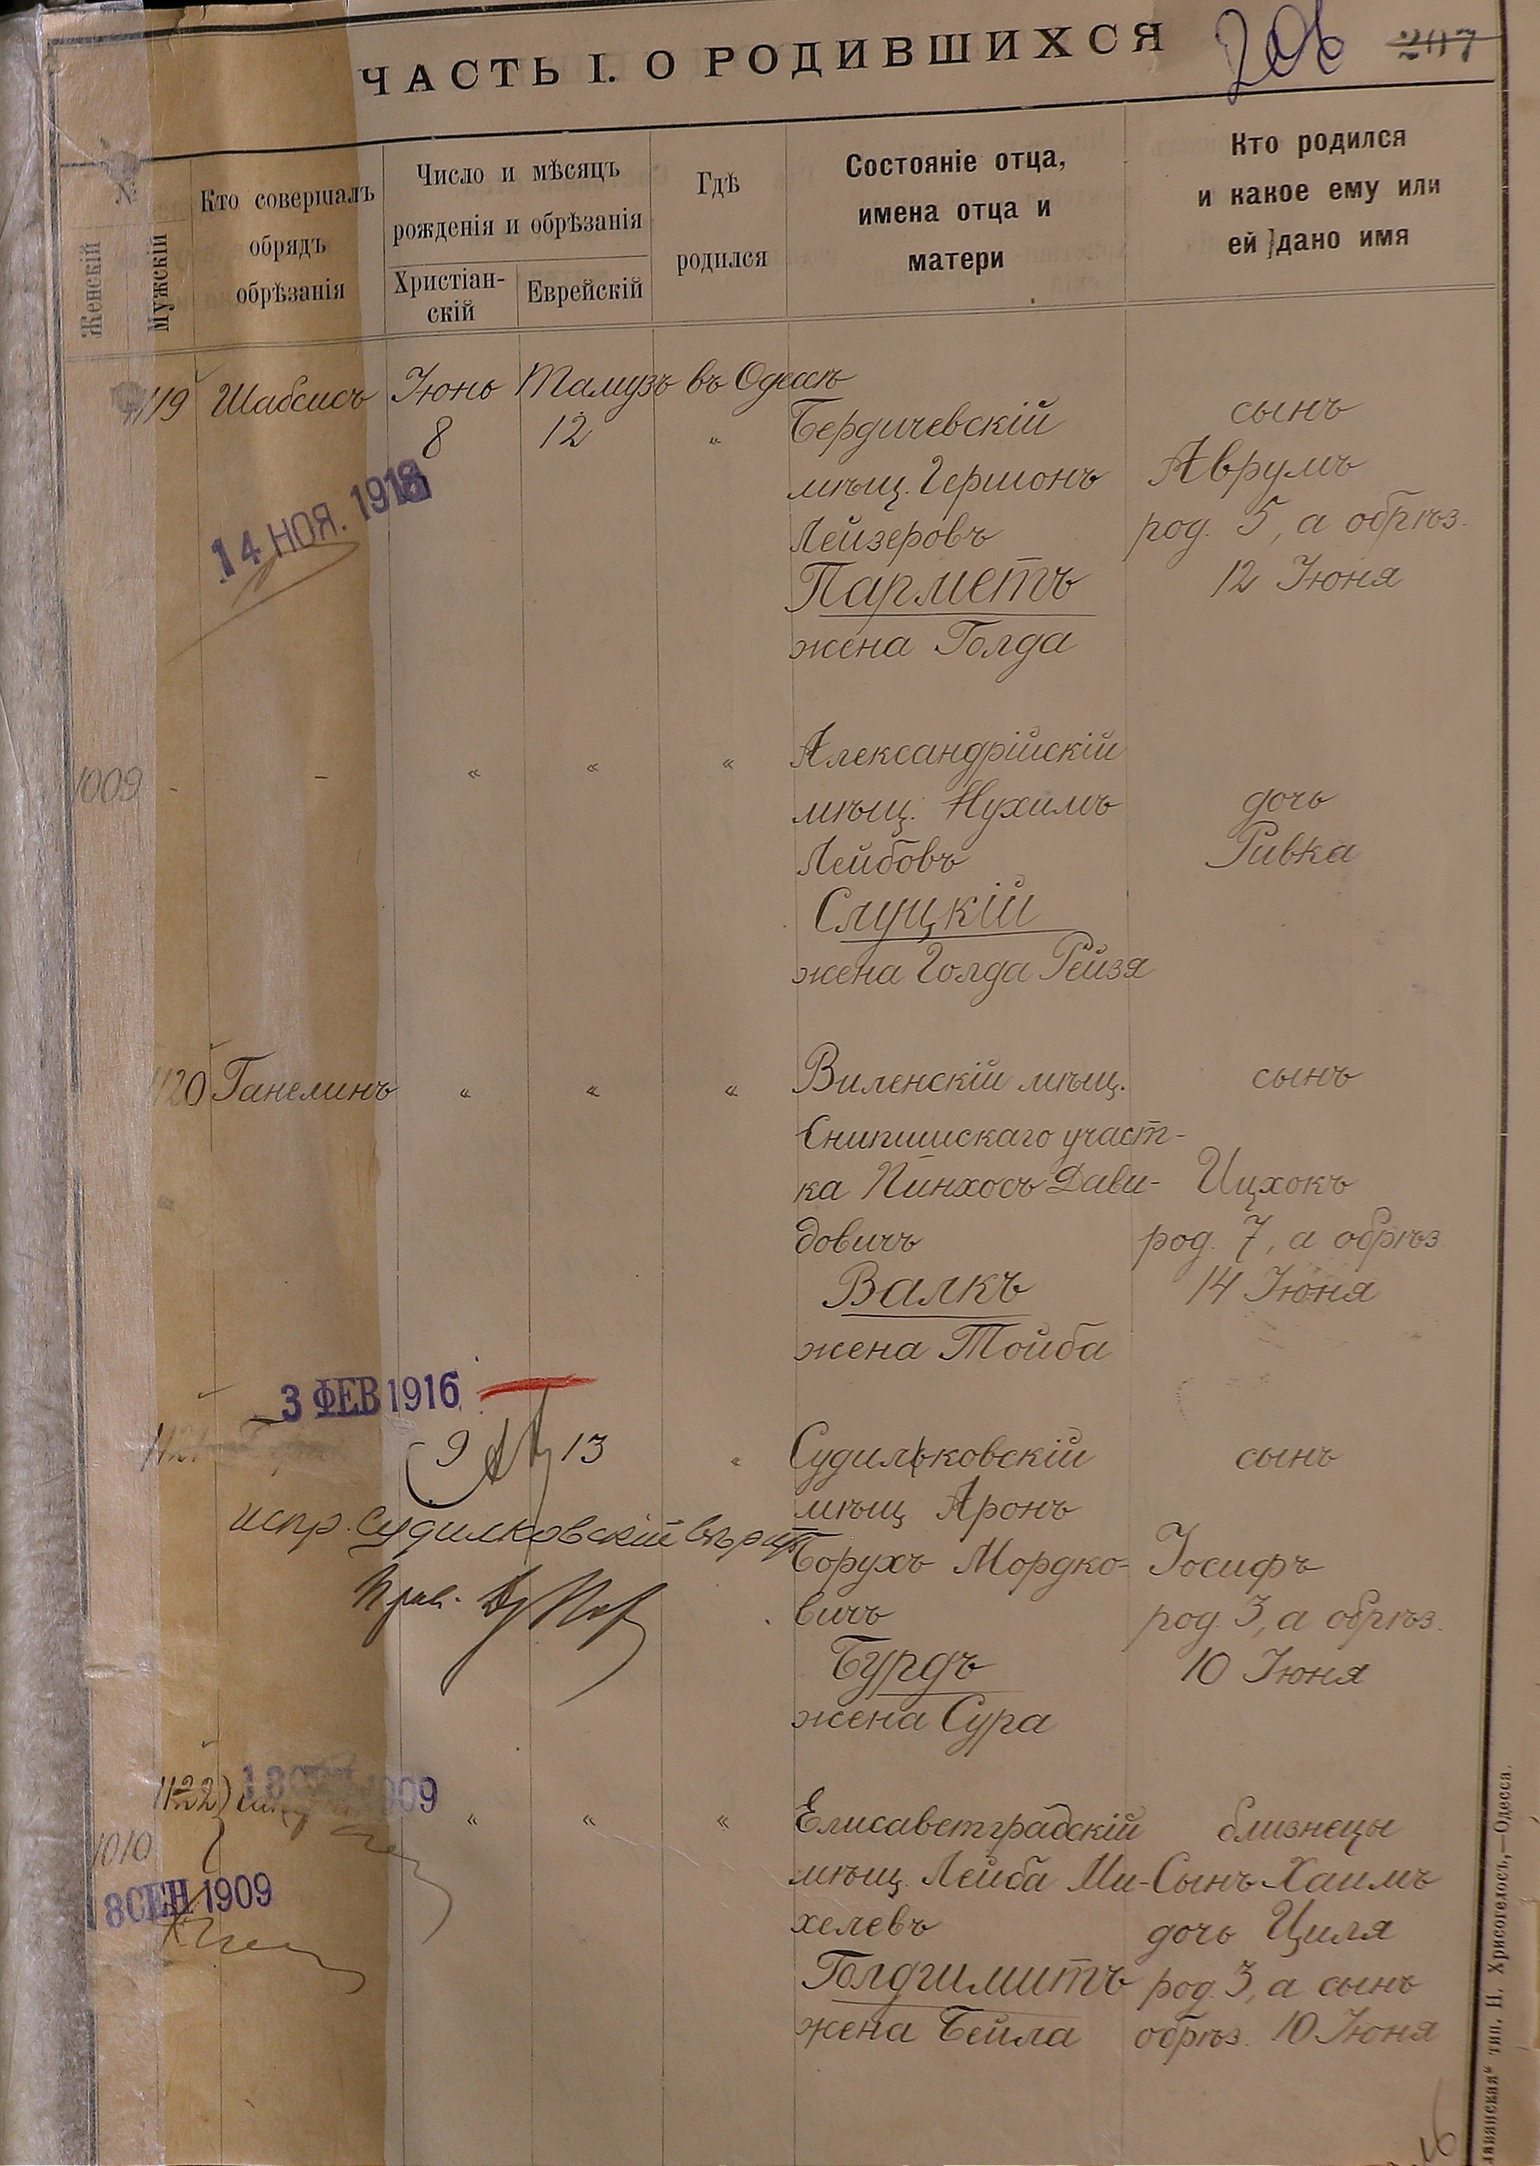 ЧАСТЬ I. О РОДИВШИХСЯ
206 207
№
Женскій
Мужскій
Кто совершалъ
обрядъ
обрѣзанія
Число и мѣсяцъ
рожденія и обрѣзанія
Христіан-
скій
Еврейскій
Гдѣ
родился
Состояніе отца,
имена отца и
матери
Кто родился
и какое ему или
ей дано имя
1119 Шабсисъ Іюнь Тамузъ въ Одессѣ
8 12 "
14 НОЯ. 1913
Бердичевскій
мѣщ. Гершонъ
Лейзеровъ
Парметъ
жена Голда
сынъ
Аврумъ
род. 5, а обрѣз.
12 Іюня
1009 - - " " "
Александрійскій
мѣщ. Нухимъ
Лейбовъ
Слуцкій
жена Голда Рейзя
дочь
Ривка
1120 Ганелинъ " " "
Виленскій мѣщ.
Снипишскаго участ-
ка Пинхосъ Дави-
довичъ
Валкъ
жена Тойба
сынъ
Ицхокъ
род. 7, а обрѣз
14 Іюня
3 ФЕВ 1916
1121 9 13 "
испр. Судилковскій вѣрить
Судильковскій
мѣщ. Аронъ
Борухъ Мордко-
вичъ
Бурдъ
жена Сура
сынъ
Іосифъ
род. 3, а обрѣз.
10 Іюня
1122 " " "
1010
18 СЕН 1909
18 СЕН 1909
Елисаветградскій
мѣщ. Лейба Ми-
хелевъ
Голдшмитъ
жена Бейла
близнецы
Сынъ Хаимъ
дочь Циля
род. 3, а сынъ
обрѣз. 10 Іюня
лавянская" тип. Н. Хрисогелосъ,—Одесса.